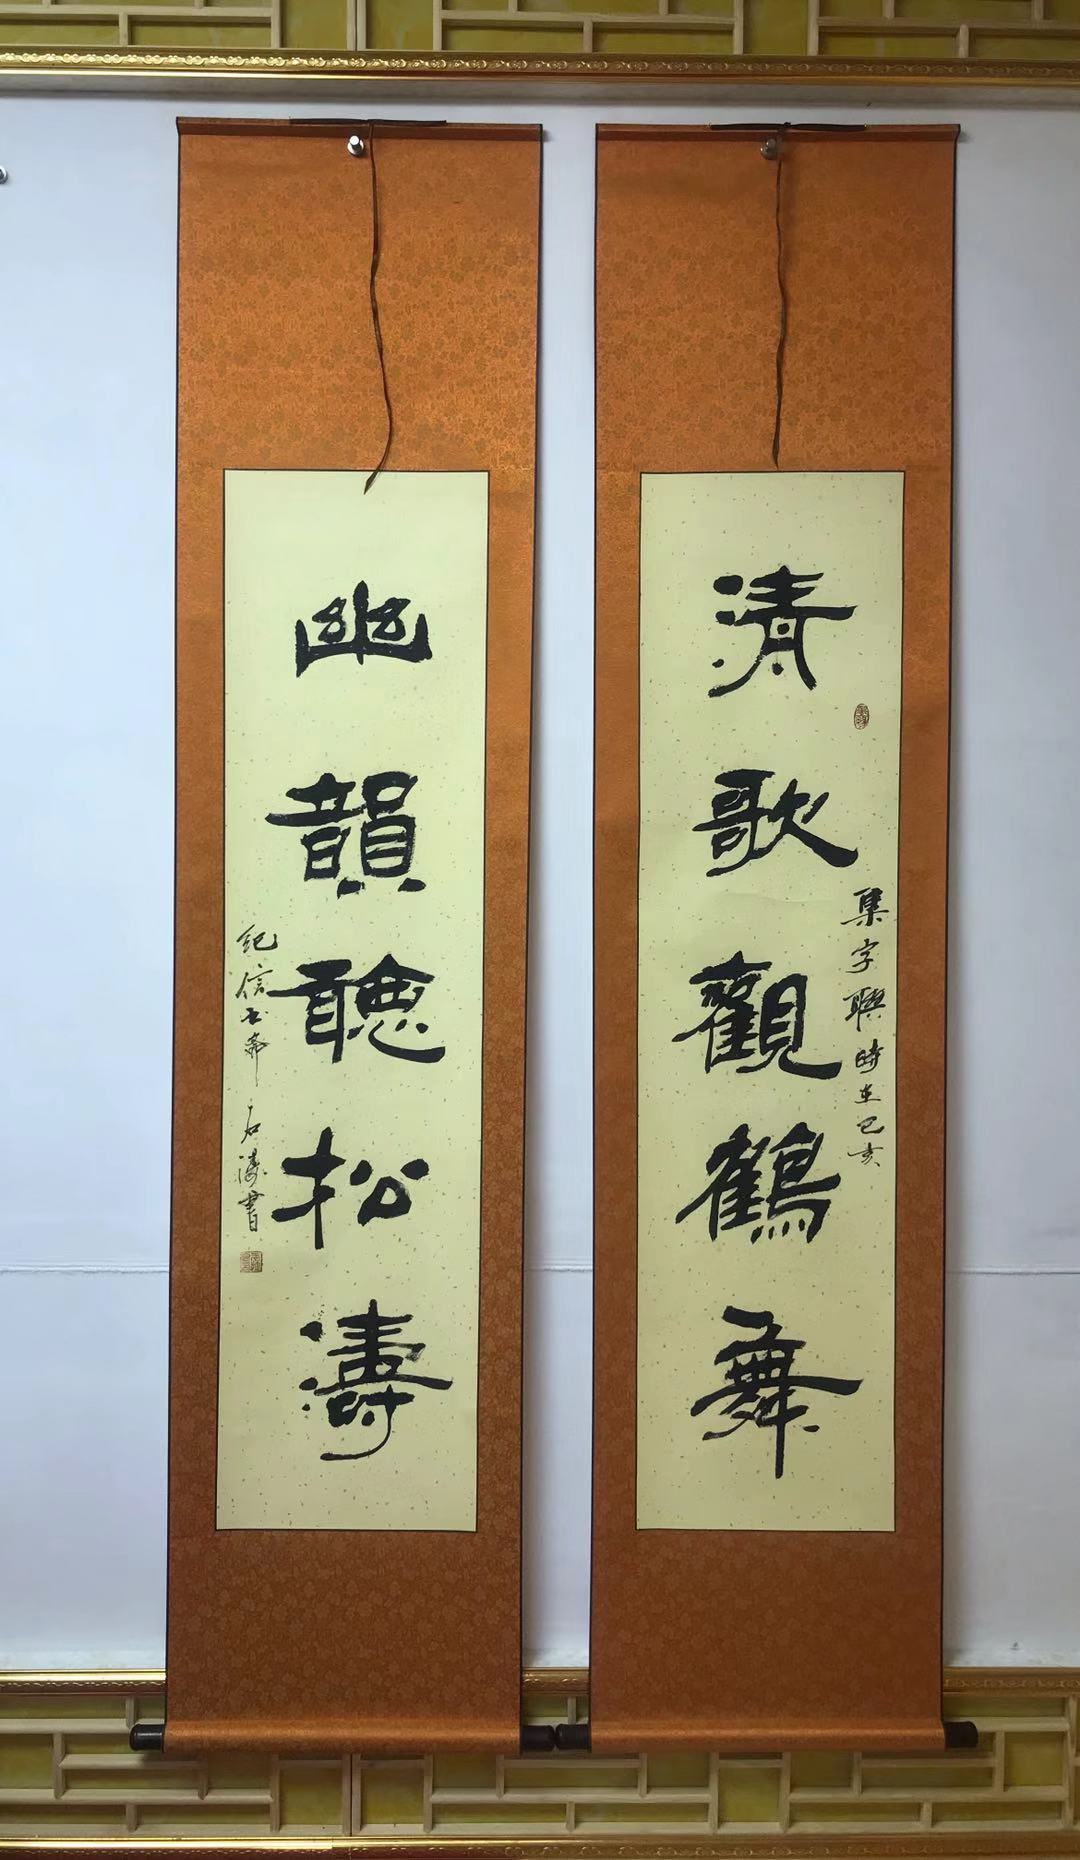 清歌觀鶴舞
集字聯時在己亥
幽韻聽松濤
紀信書齋石濤書